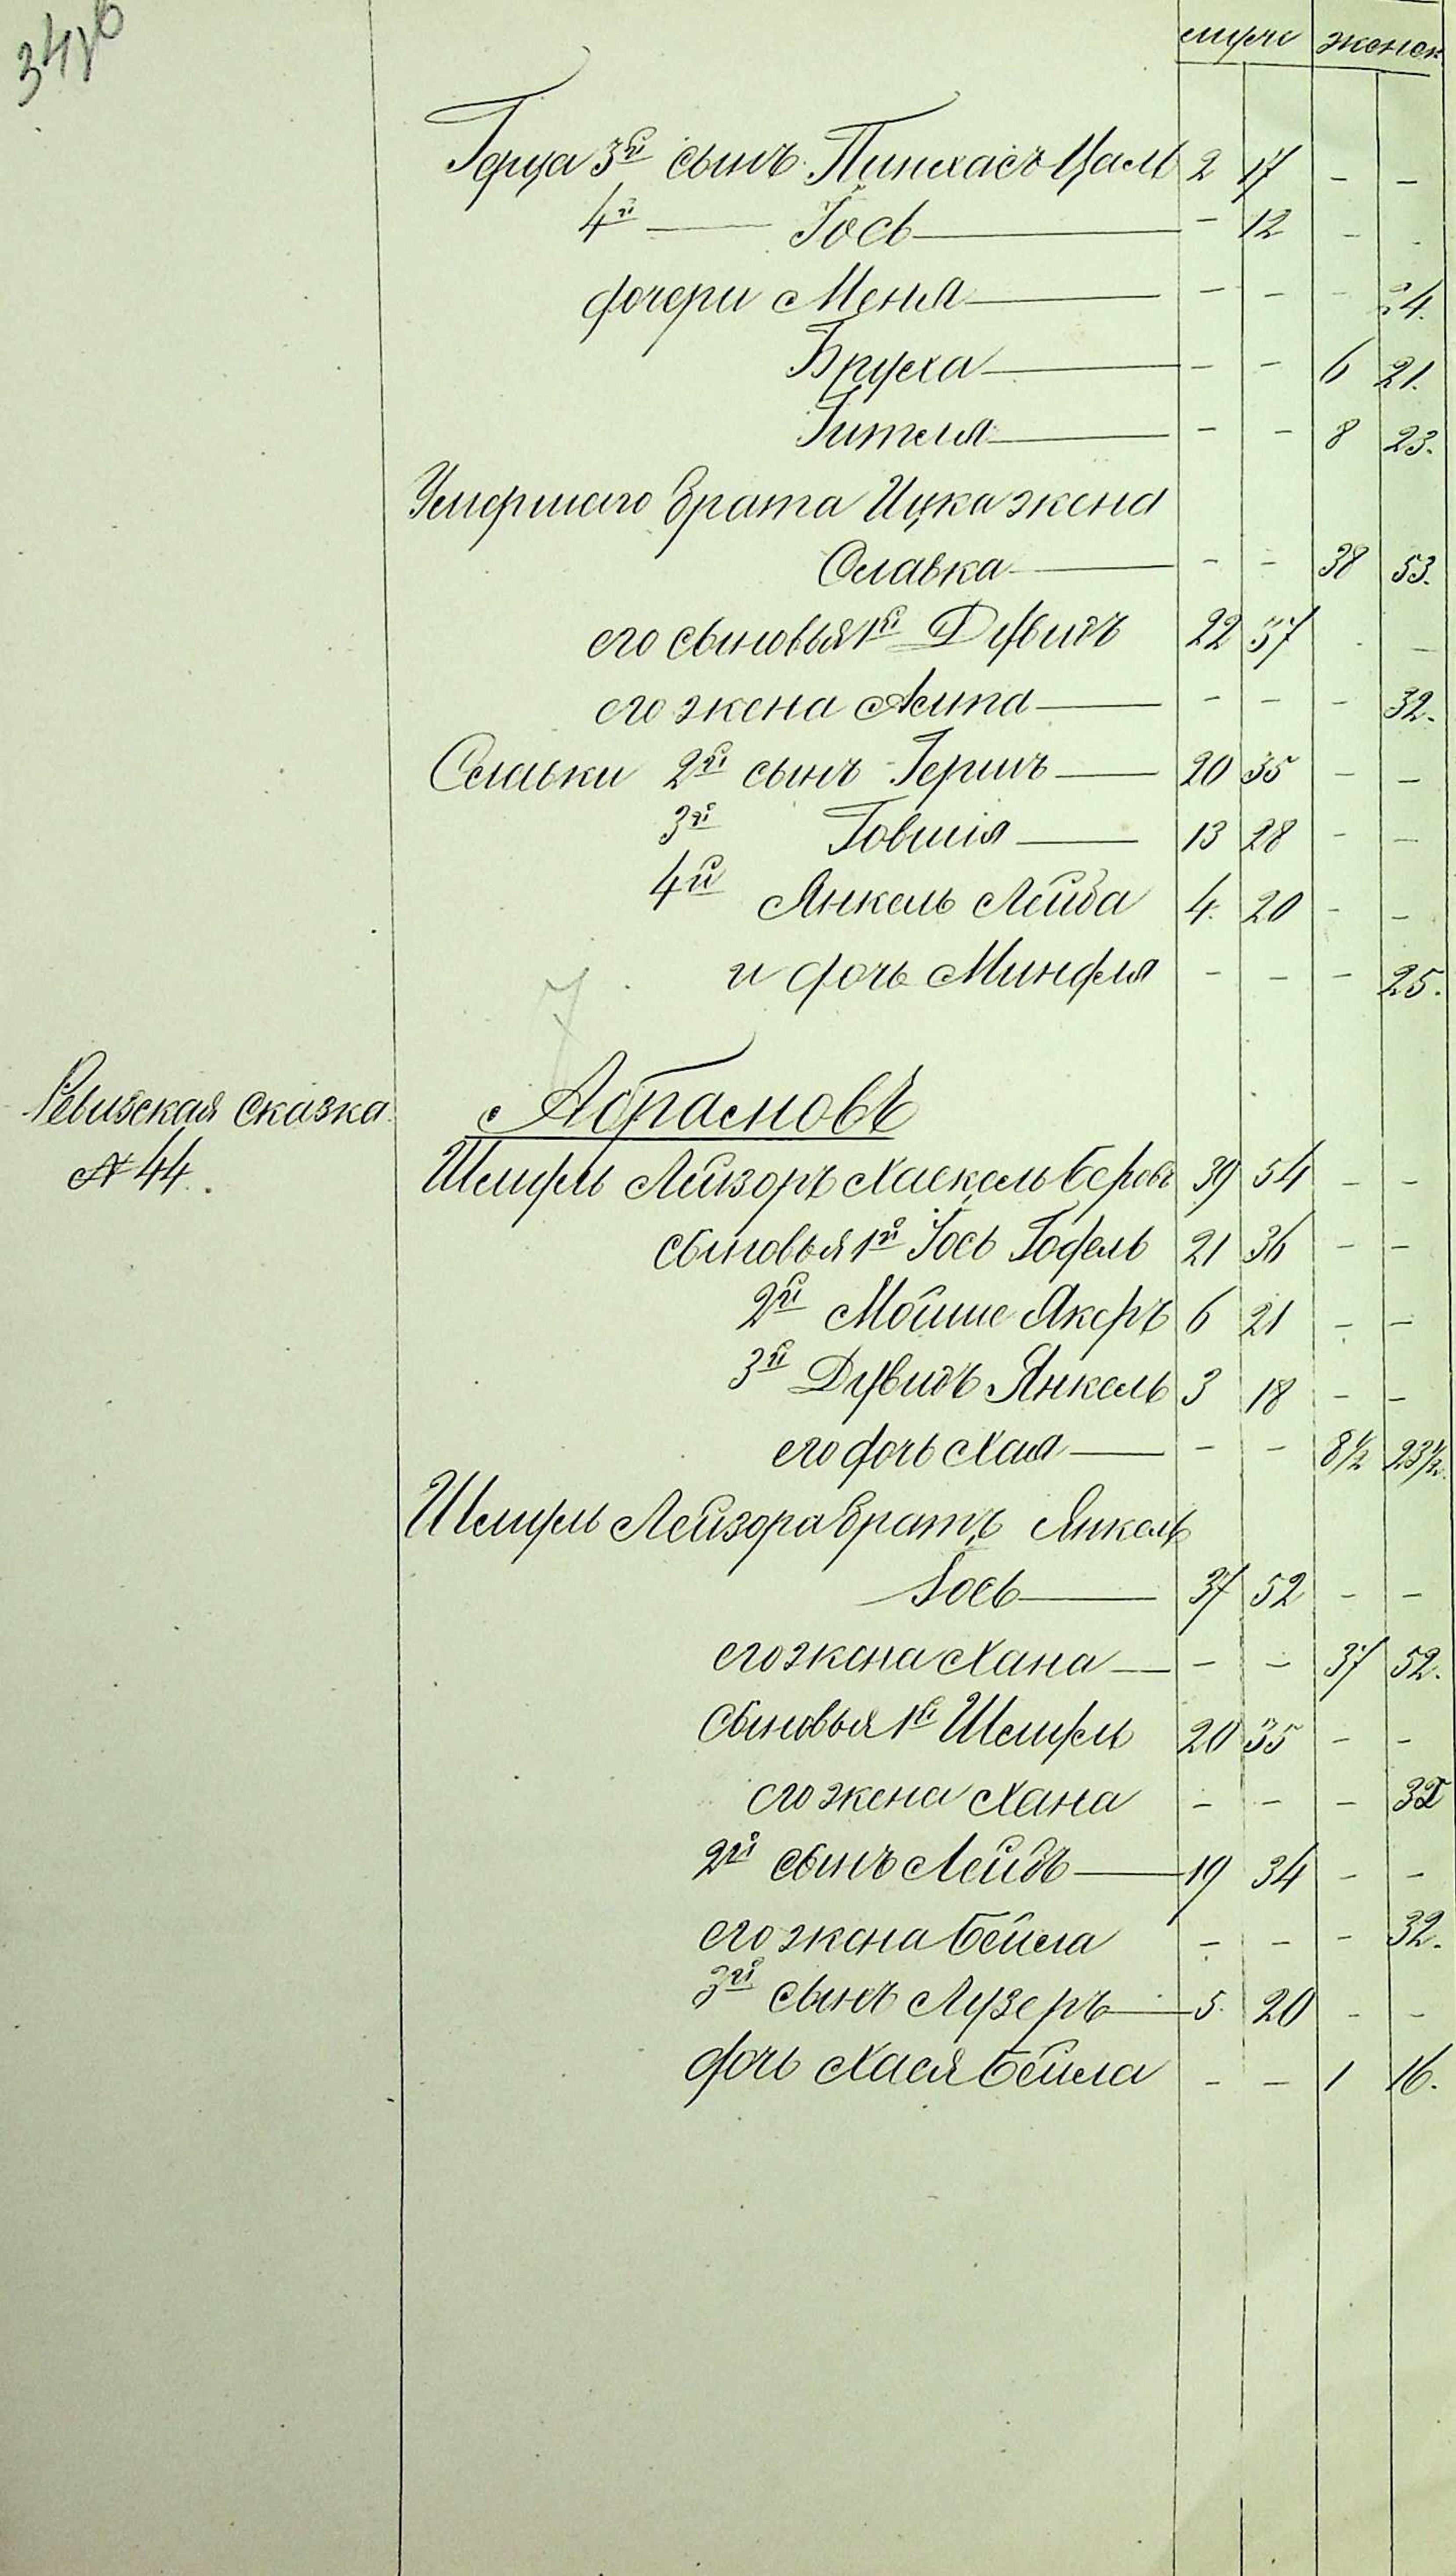 мужс женск
Герца 3й сынъ Пинхасъ Цаль 2 17 - -
4й — Іось — - 12 - -
дочери Меня — - - - 24.
Бруха — - - 6 21.
Гителя — - - 8 23.
Умершаго брата Ицка жена
Славка — - - 38 53.
его сыновья 1й Дувидъ 22 37 - -
его жена Элта — - - - 32.
Славки 2й сынъ Гершъ — 20 35 - -
3й Говшія — 13 28 - -
4й Янкель Лейба 4. 20 - -
и дочь Миндля - - - 25.
Абрамовъ
Ревизская сказка
№ 44.
Шмуль Лейзоръ Хаскель Беровъ 39 54 - -
сыновья 1й Іось Годель 21 36 - -
2й Мойше Якеръ 6 21 - -
3й Дувидъ Янкель 3 18 - -
его дочь Хая — - - 8½ 23½.
Шмуль Лейзора братъ Янкель
Іось — 37 52 - -
его жена Хана — - - 37 52.
сыновья 1й Шмуль 20 35 - -
его жена Хана - - - 32
2й сынъ Лейбъ — 19 34 - -
его жена Бейла - - - 32.
3й сынъ Лузеръ — 5. 20 - -
дочь Хася Бейла - - 1 16.